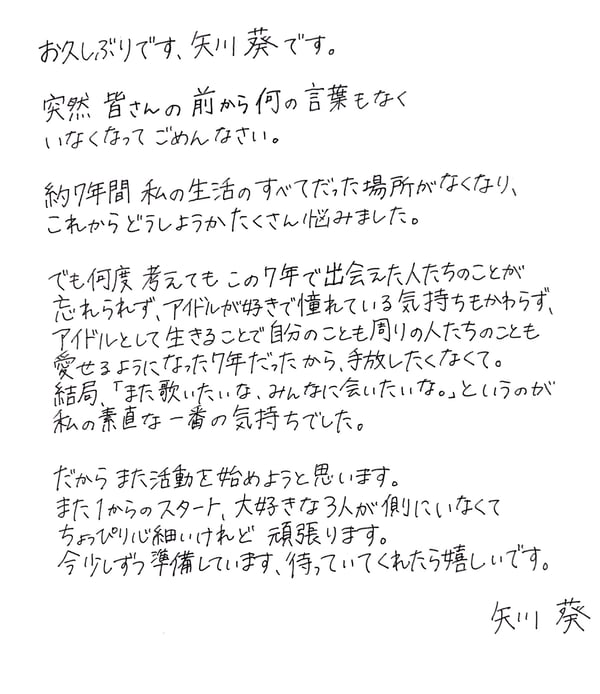 お久しぶりです、矢川葵です。
突然 皆さんの 前から何の言葉もなく
いなくなって ごめんなさい。
約7年間 私の生活のすべてだった場所がなくなり、
これからどうしようかたくさん悩みました。
でも何度 考えても この7年で出会えた人たちのことが
忘れられず、アイドルが好きで憧れている気持ちもかわらず、
アイドルとして生きることで自分のことも周りの人たちのことも
愛せるようになった7年だったから、手放したくなくて。
結局、「また歌いたいな、みんなに会いたいな。」というのが
私の素直な一番の気持ちでした。
だから また活動を始めようと思います。
また1からのスタート、大好きな3人が側にいなくて
ちょっぴり心細いけれど 頑張ります。
今少しずつ準備しています、待っていてくれたら嬉しいです。
矢川 葵